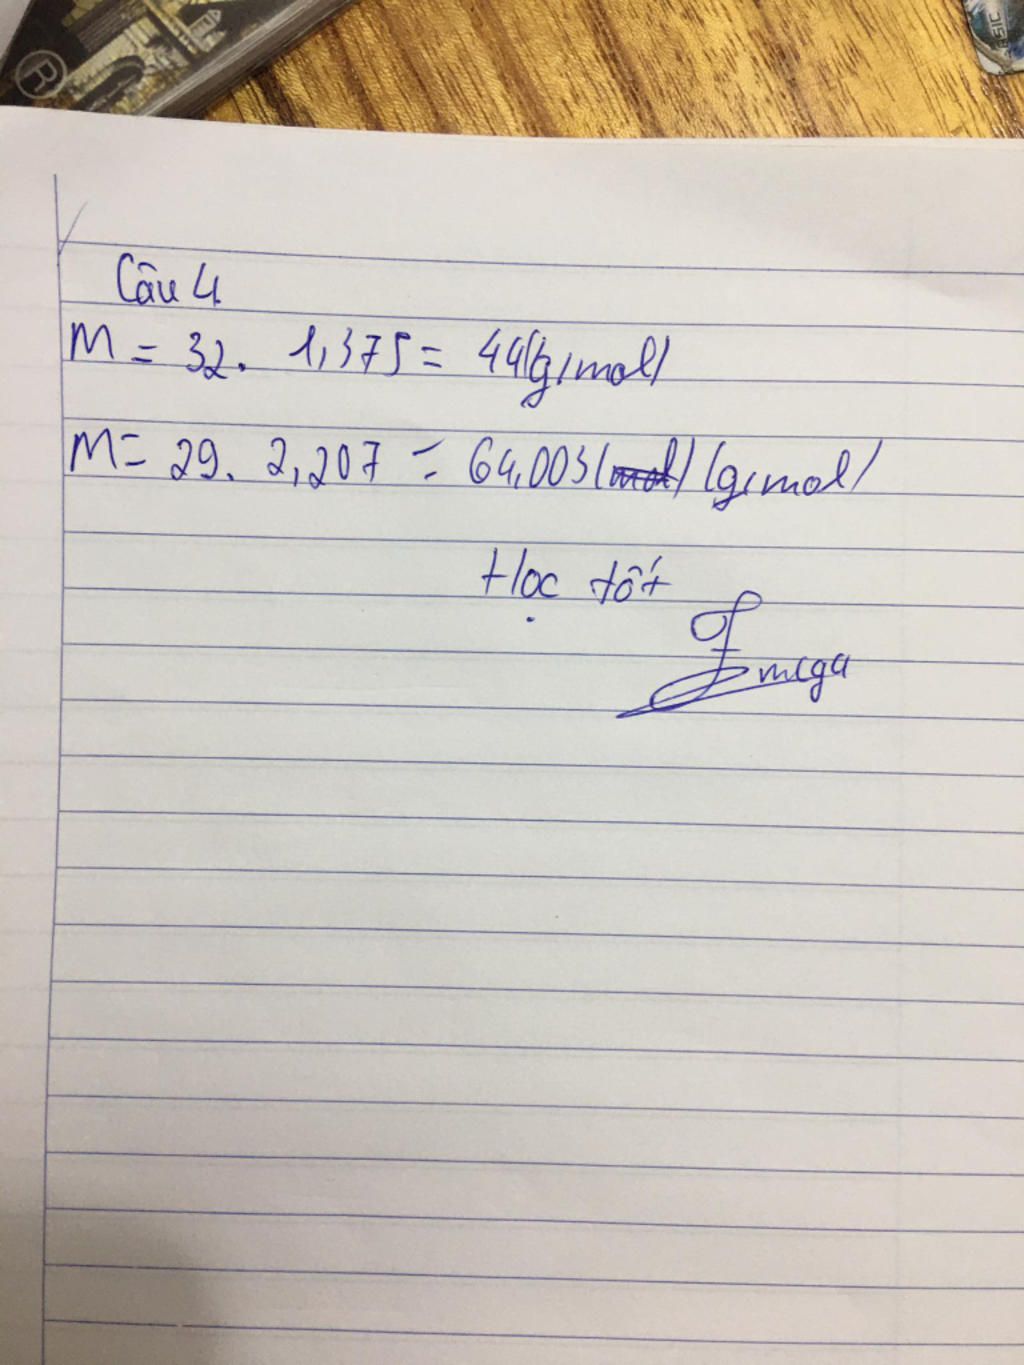 R
BASIC
Câu 4
M = 32. 1,375 = 44(g/mol)
M = 29. 2,207 = 64,003(mol) (g/mol)
Học tốt
Omega